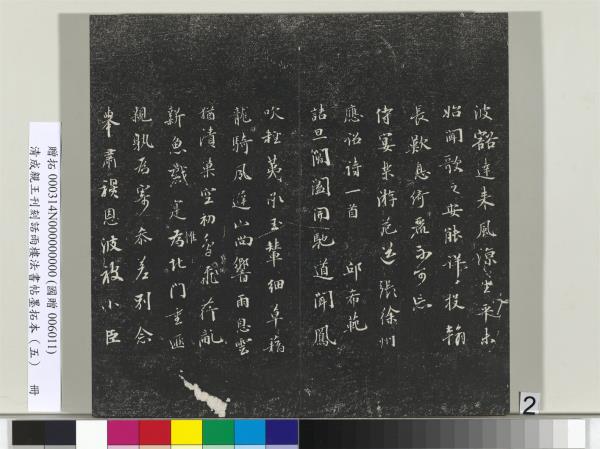 波豁達来風涼生平未
始聞歌之安能詳投翰
長歎息綺麗不可忘
侍宴樂游苑送張徐州
應詔詩一首 邱希範
詰旦閶闔開馳道聞鳳
吹輕荑承玉輦細草藉
龍騎風遲山尚響雨息雲
猶漬巢空初鳥飛荇亂
新魚戲寔為惟北門重匪
親孰為寄參差別念
舉肅穆恩波被小臣
贈拓 000314N000000000 (國贈 006011)
清成親王刊刻話雨樓法書帖墨拓本(五) 冊
2